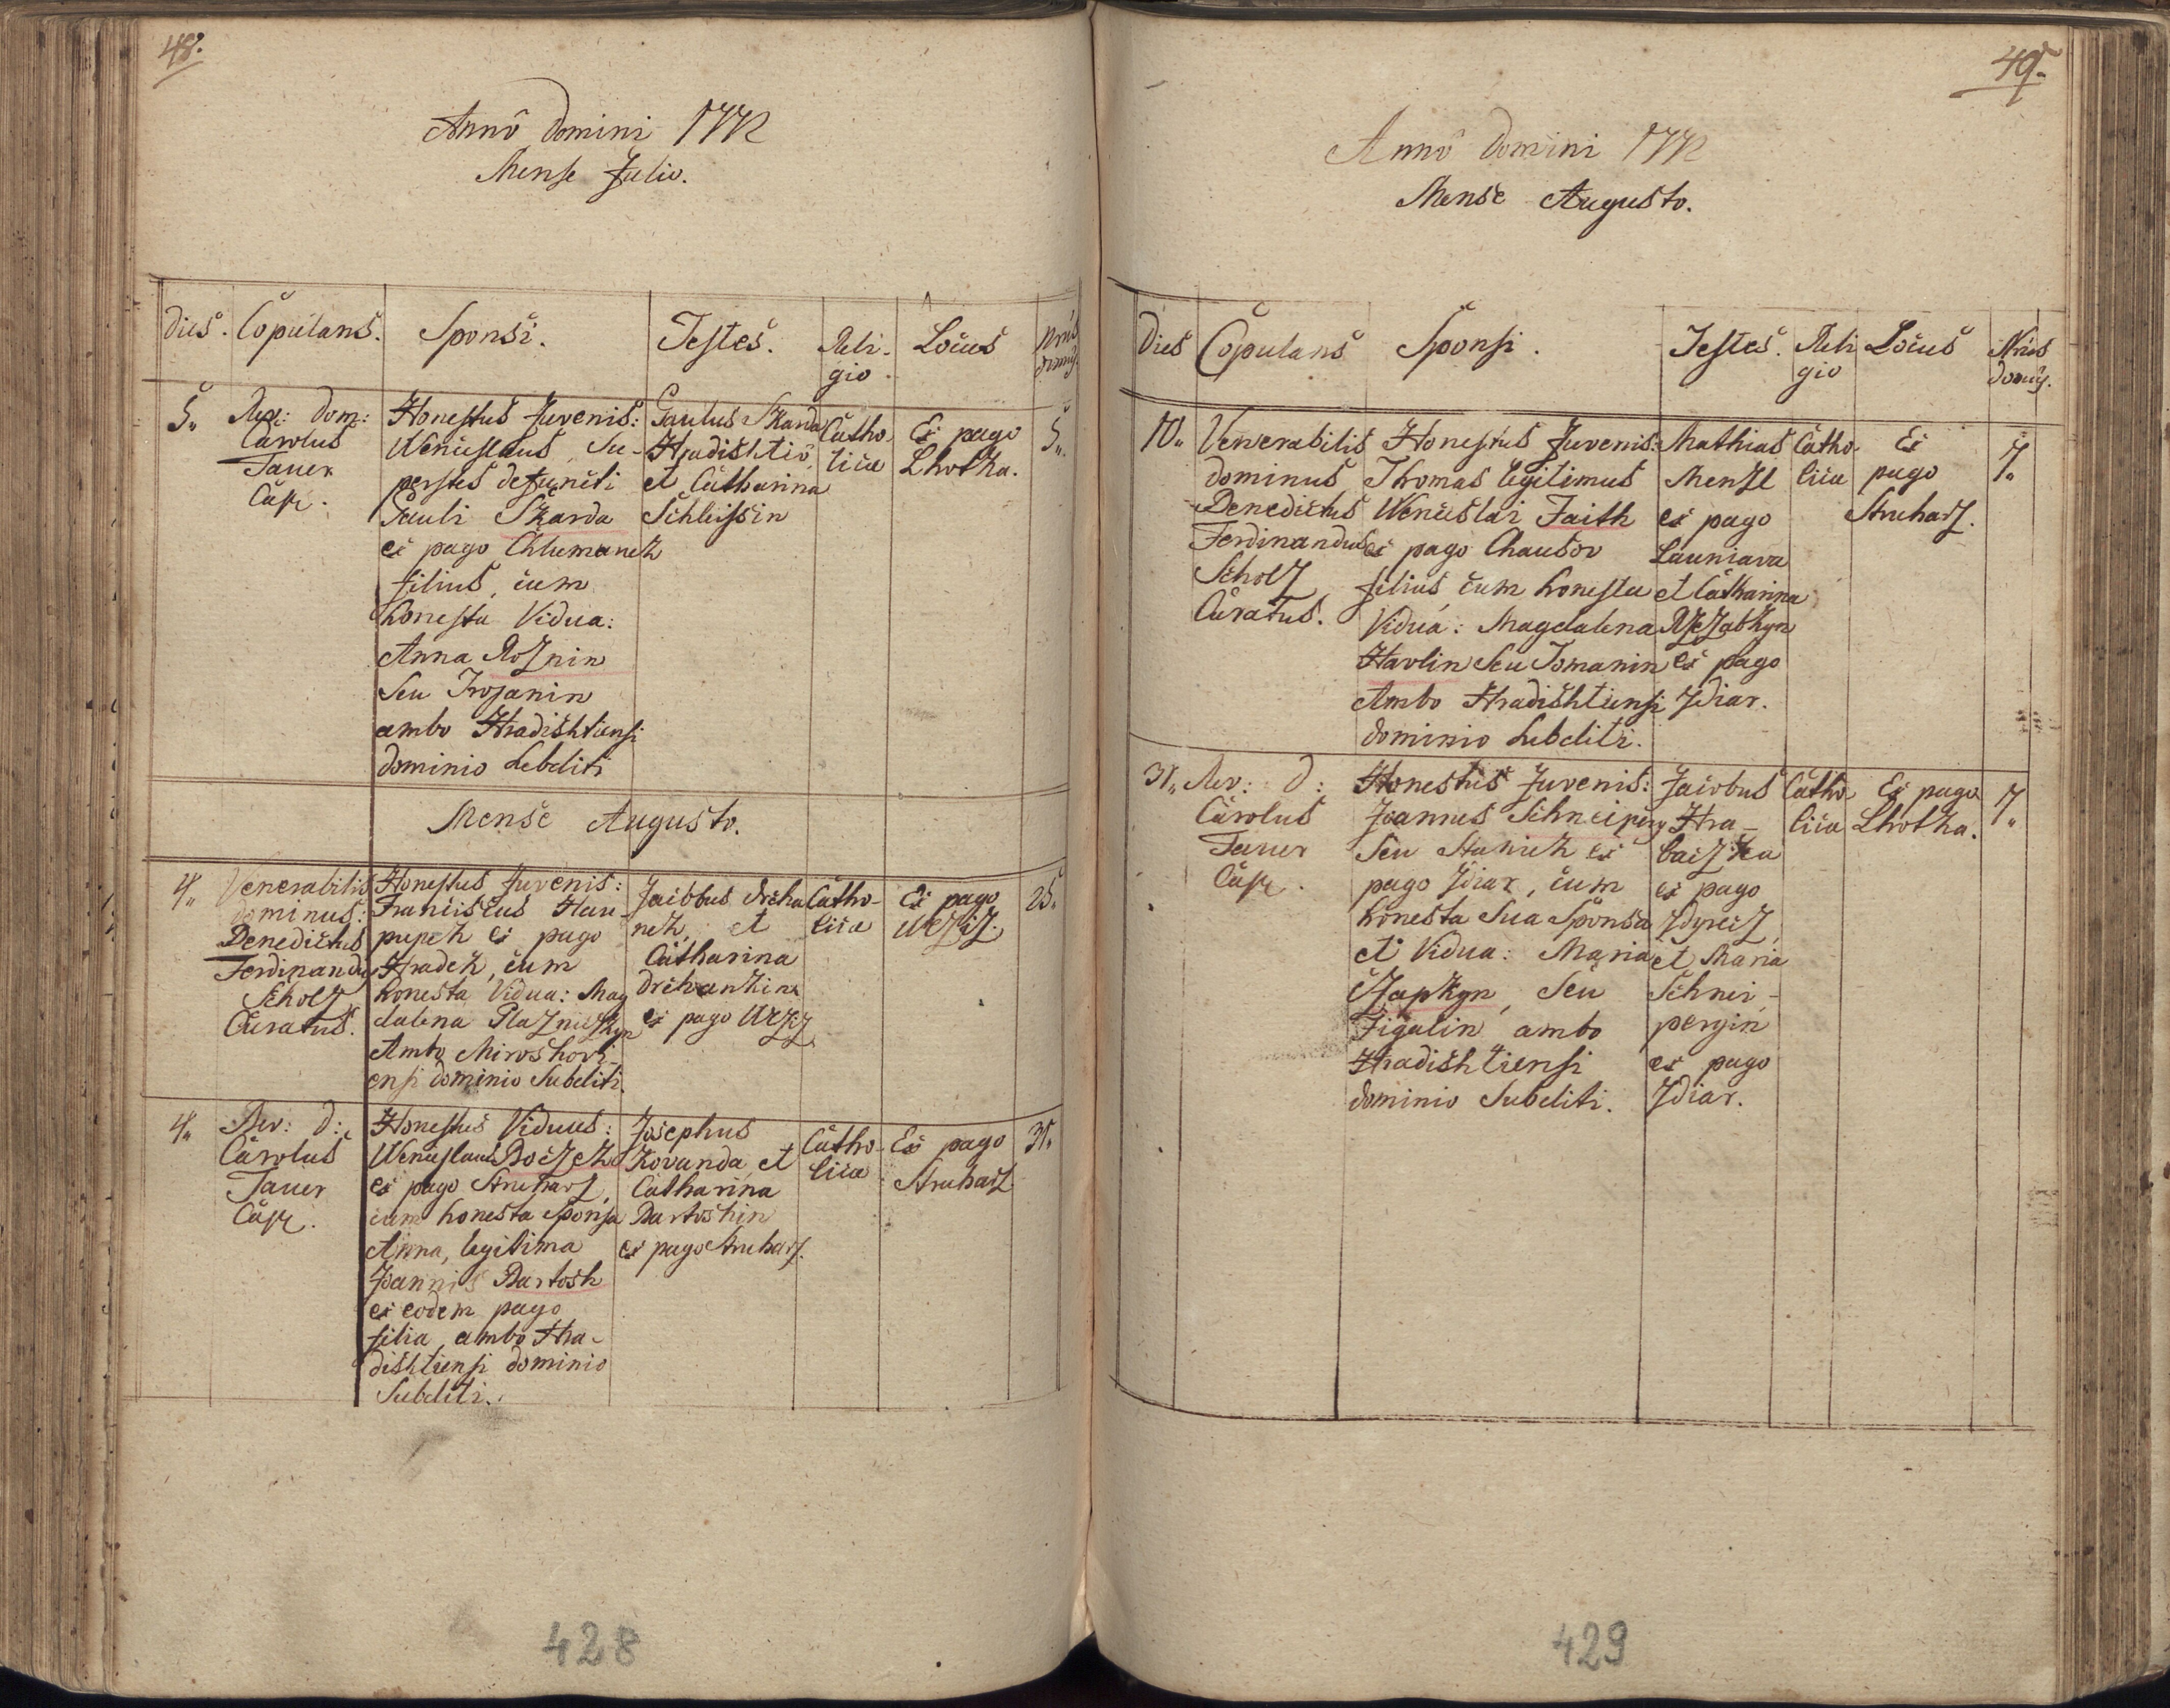 48.
Anno Domini 1772
Mense Julio.
Dies. Copulans. Sponsi. Testes. Reli-gio. Locus Nrus domus.
5. Rev: Dom: Carolus Tauer Cap:
Honestus Juvenis:
Wenceslaus, Su-
perstes defuncti
Pauli Skarda
ex pago Chlumanek
filius, cum
honesta Vidua:
Anna Roznin
Seu Trojanin
ambo Hradishtiensi
dominio Subditi
Paulus Skarda
Hradishtio
et Catharina
Schleissin
Catho-
lica
Ex pago
Lhotka.
5.
Mense Augusto.
4. Venerabilis
dominus:
Benedictus
Ferdinandus
Scholz
Curatus.
Honestus Juvenis:
Franciscus Hau-
pupek ex pago
Hradek, cum
honesta Vidua: Mag
dalena Plaznickyn
Ambo Miroshovi-
ensi dominio Subditi.
Jacobus Drcha
nek, et
Catharina
Drchankin
ex pago
Catho-
lica
Ex pago
25.
4. Rev: D:
Carolus
Tauer
Cap:
Honestus Viduus:
Wenceslaus Boczek
ex pago Struharz,
cum honesta Sponsa
Anna, legitima
Joannis Bartosh
ex eodem pago
filia, ambo Hra-
dishtiensi dominio
Subditi.
Josephus
Kovanda et
Catharina
Bartoshin
ex pago Struharz.
Catho-
lica
Ex pago
Struharz.
31.
428
49.
Anno Domini 1772
Mense Augusto.
Dies Copulans Sponsi. Testes. Reli gio Locus Nrus domus.
10. Venerabilis
dominus
Benedictus
Ferdinandus
Scholz
Curatus.
Honestus Juvenis:
Thomas legitimus
Wenceslai Faith
ex pago Chausov
filius, cum honesta
Vidua: Magdalena
Havlin Seu Tomanin
Ambo Hradishtiensi
dominio Subditi.
Mathias
Menzl
ex pago
Launiava
et Catharina
Rzezabkyn
ex pago
Zdiar.
Catho-
lica
Ex
pago
Struharz.
7.
31. Rev: D:
Carolus
Tauer
Cap:
Honestus Juvenis:
Joannes Schneiperg
Seu Stanick ex
pago Zdiar, cum
honesta Sua Sponsa
et Vidua: Maria
Czapkyn, Seu
Figalin ambo
Hradishtiensi
dominio Subditi.
Jacobus
Hra-
baczka
ex pago
et Maria
Schnei-
pergin
ex pago
Zdiar.
Catho-
lica
Ex pago
Lhotka.
7.
429